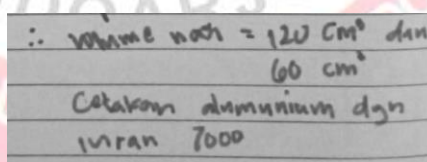 ∴ volume nooh = 120 cm³ dan
60 cm³
Cetakan alumunium dgn
iuran 7000